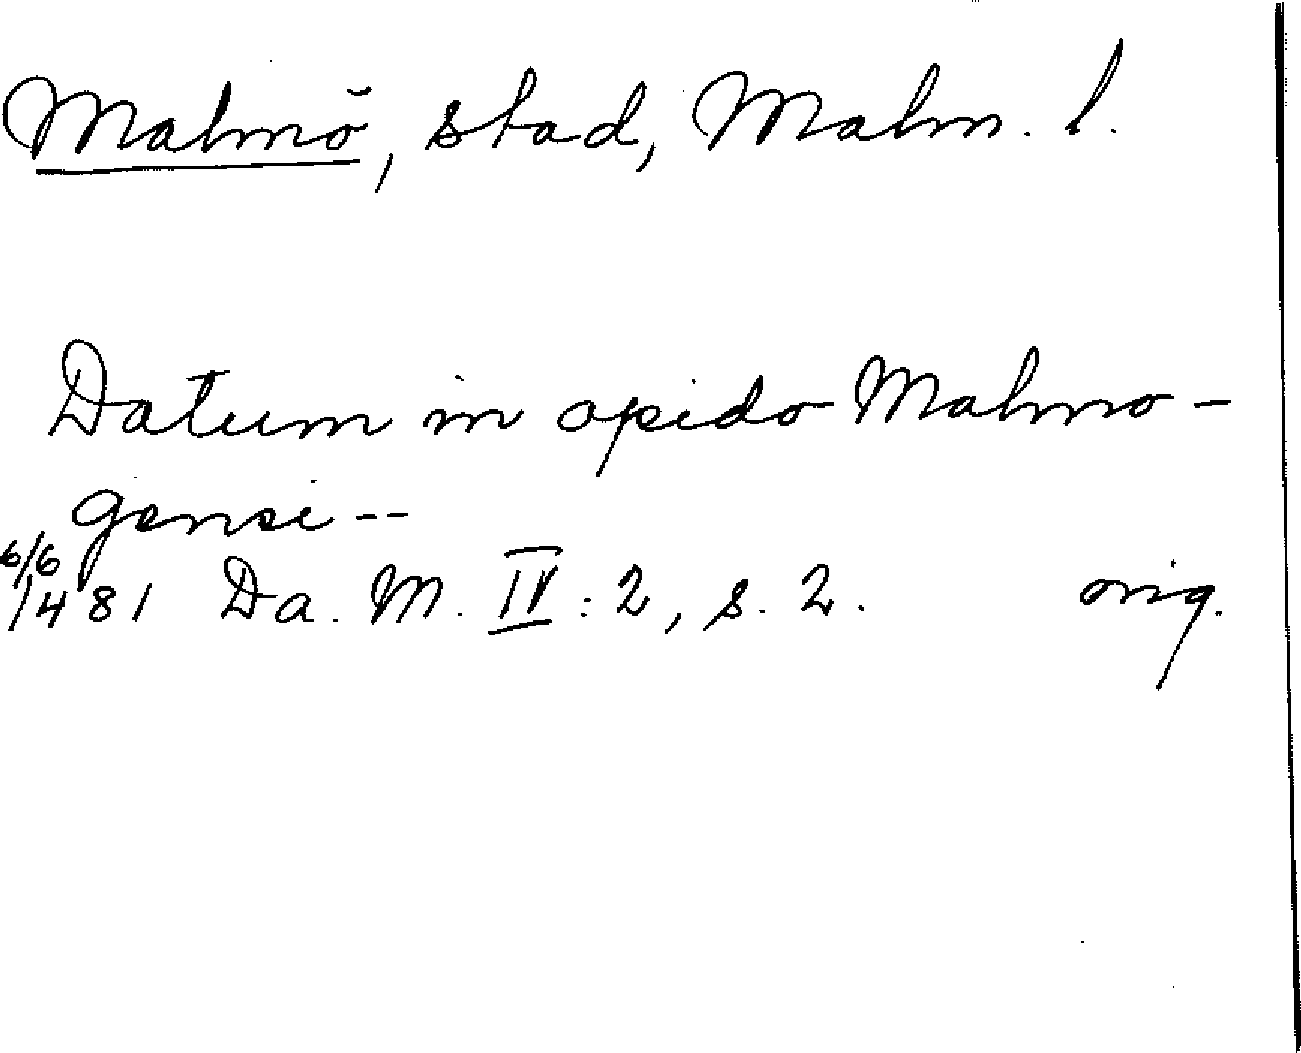 Malmö, stad, Malm. l.
Datum in opido Malmo-
gensi --
6/6
1481 Da. M. IV: 2, s. 2. orig.